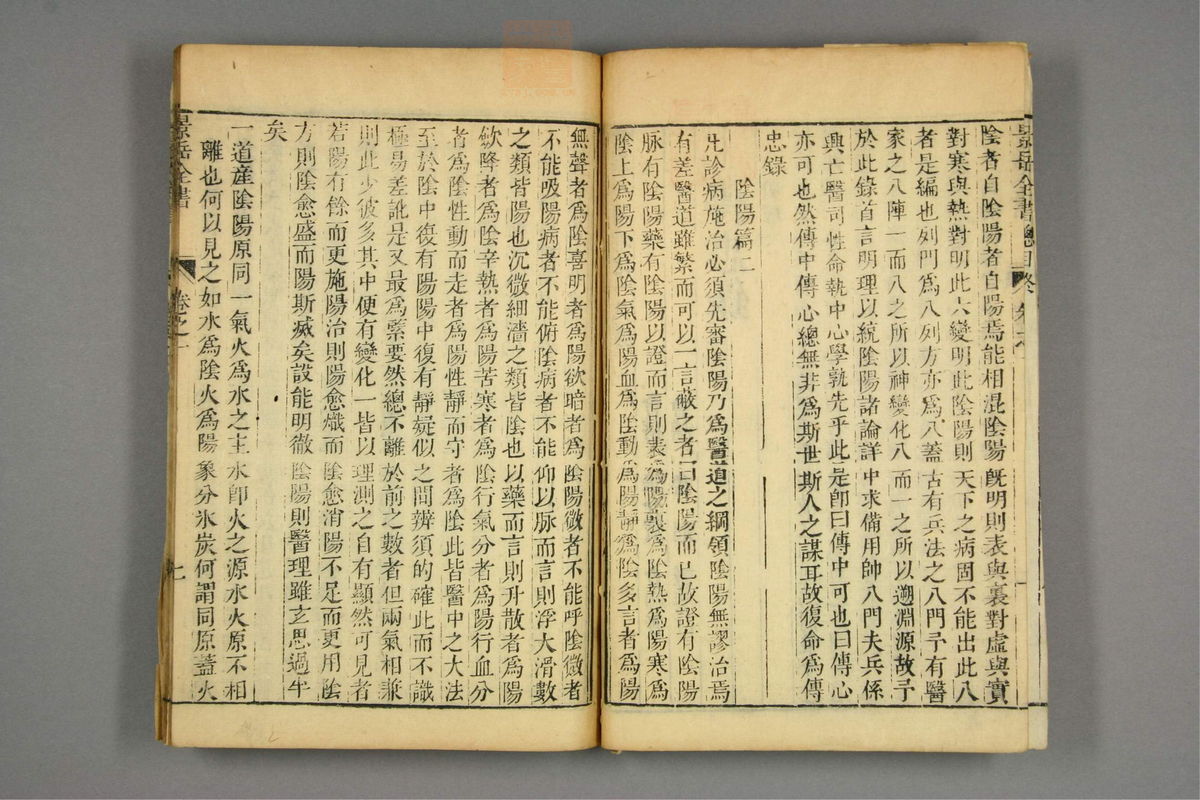 景岳全書總目終
陰者自陰陽者自陽焉能相混陰陽既明則表與裏對虛與實
對寒與熱對明此六變明此陰陽則天下之病固不能出此八
者是編也列門為八列方亦為八蓋古有兵法之八門予有醫
家之八陣一而八之所以神變化八而一之所以遡淵源故予
於此錄首言明理以統陰陽諸論詳中求備用帥八門夫兵係
興亡醫司性命執中心學孰先乎此是卽曰傳中可也曰傳心
亦可也然傳中傳心總無非為斯世斯人之謀耳故復命為傳
忠錄
陰陽篇二
凡診病施治必須先審陰陽乃為醫道之綱領陰陽無謬治焉
有差醫道雖繁而可以一言蔽之者曰陰陽而已故證有陰陽
脉有陰陽藥有陰陽以證而言則表為陽裏為陰熱為陽寒為
陰上為陽下為陰氣為陽血為陰動為陽靜為陰多言者為陽
無聲者為陰喜明者為陽欲暗者為陰陽微者不能呼陰微者
不能吸陽病者不能俯陰病者不能仰以脉而言則浮大滑數
之類皆陽也沉微細濇之類皆陰也以藥而言則升散者為陽
歛降者為陰辛熱者為陽苦寒者為陰行氣分者為陽行血分
者為陰性動而走者為陽性靜而守者為陰此皆醫中之大法
至於陰中復有陽陽中復有靜疑似之間辨須的確此而不識
極易差訛是又最為緊要然總不離於前之數者但兩氣相兼
則此少彼多其中便有變化一皆以理測之自有顯然可見者
若陽有餘而更施陽治則陽愈熾而陰愈消陽不足而更用陰
方則陰愈盛而陽斯滅矣設能明徹陰陽則醫理雖玄思過半
矣
一道產陰陽原同一氣火為水之主水卽火之源水火原不相
離也何以見之如水為陰火為陽象分氷炭何謂同原蓋火
景岳全書
卷之一
七